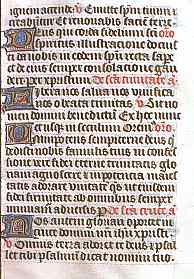 ignem accende. V. Emitte spm tuum et
creabuntur Et renovabis faciē terre.
Deus qui corda fidelium sci
spiritus illustratione docuisti
da nobis in eodem spū recta sape
re et de eius semper consolatione gau
dere per xpm De sctā trinitate ā
libera nos salva nos vivifica
nos o beata trinitas. V. Sit no
men domini benedictū Ex hoc nunc
et usque in seculum
Omnipotens sempiterne deus q
dedisti nobis famulis tuis in confes
sione vere fidei eterne trinitatis glo
riam agnoscere et in potentia maies
tatis adorare unitatē qs ut eiusdem
fidei firmitate ab omnibus semper
muniamur adversis De sctā cruce ā
Nos autem gloriari oportet in
cruce domini nri ihu xpi
V. Omnis terra adoret te deus et psal
lat tibi psalmum dicat nomini tuo